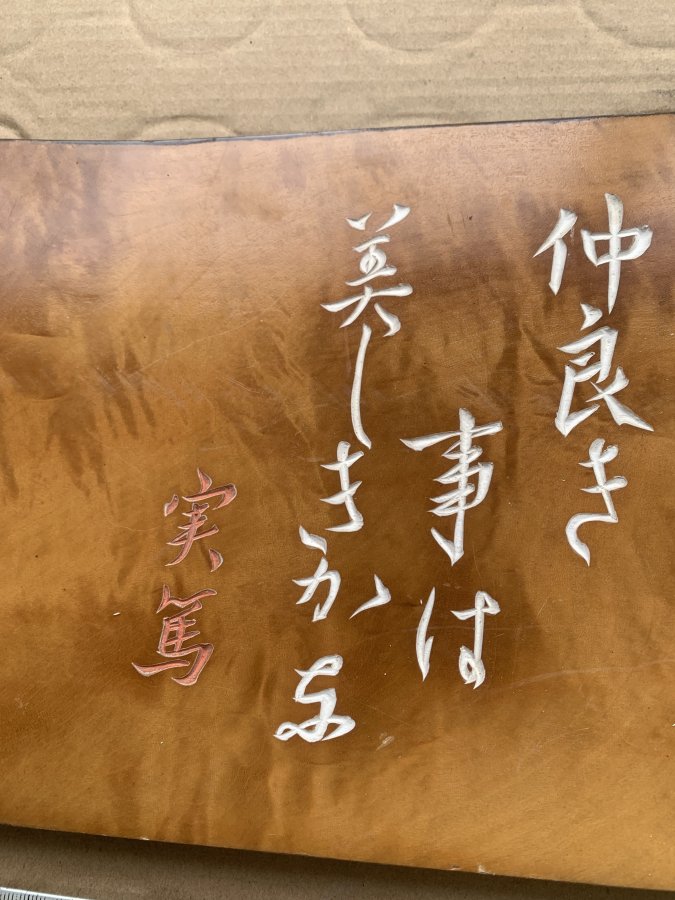 仲良き
事は
美しきかな
実篤